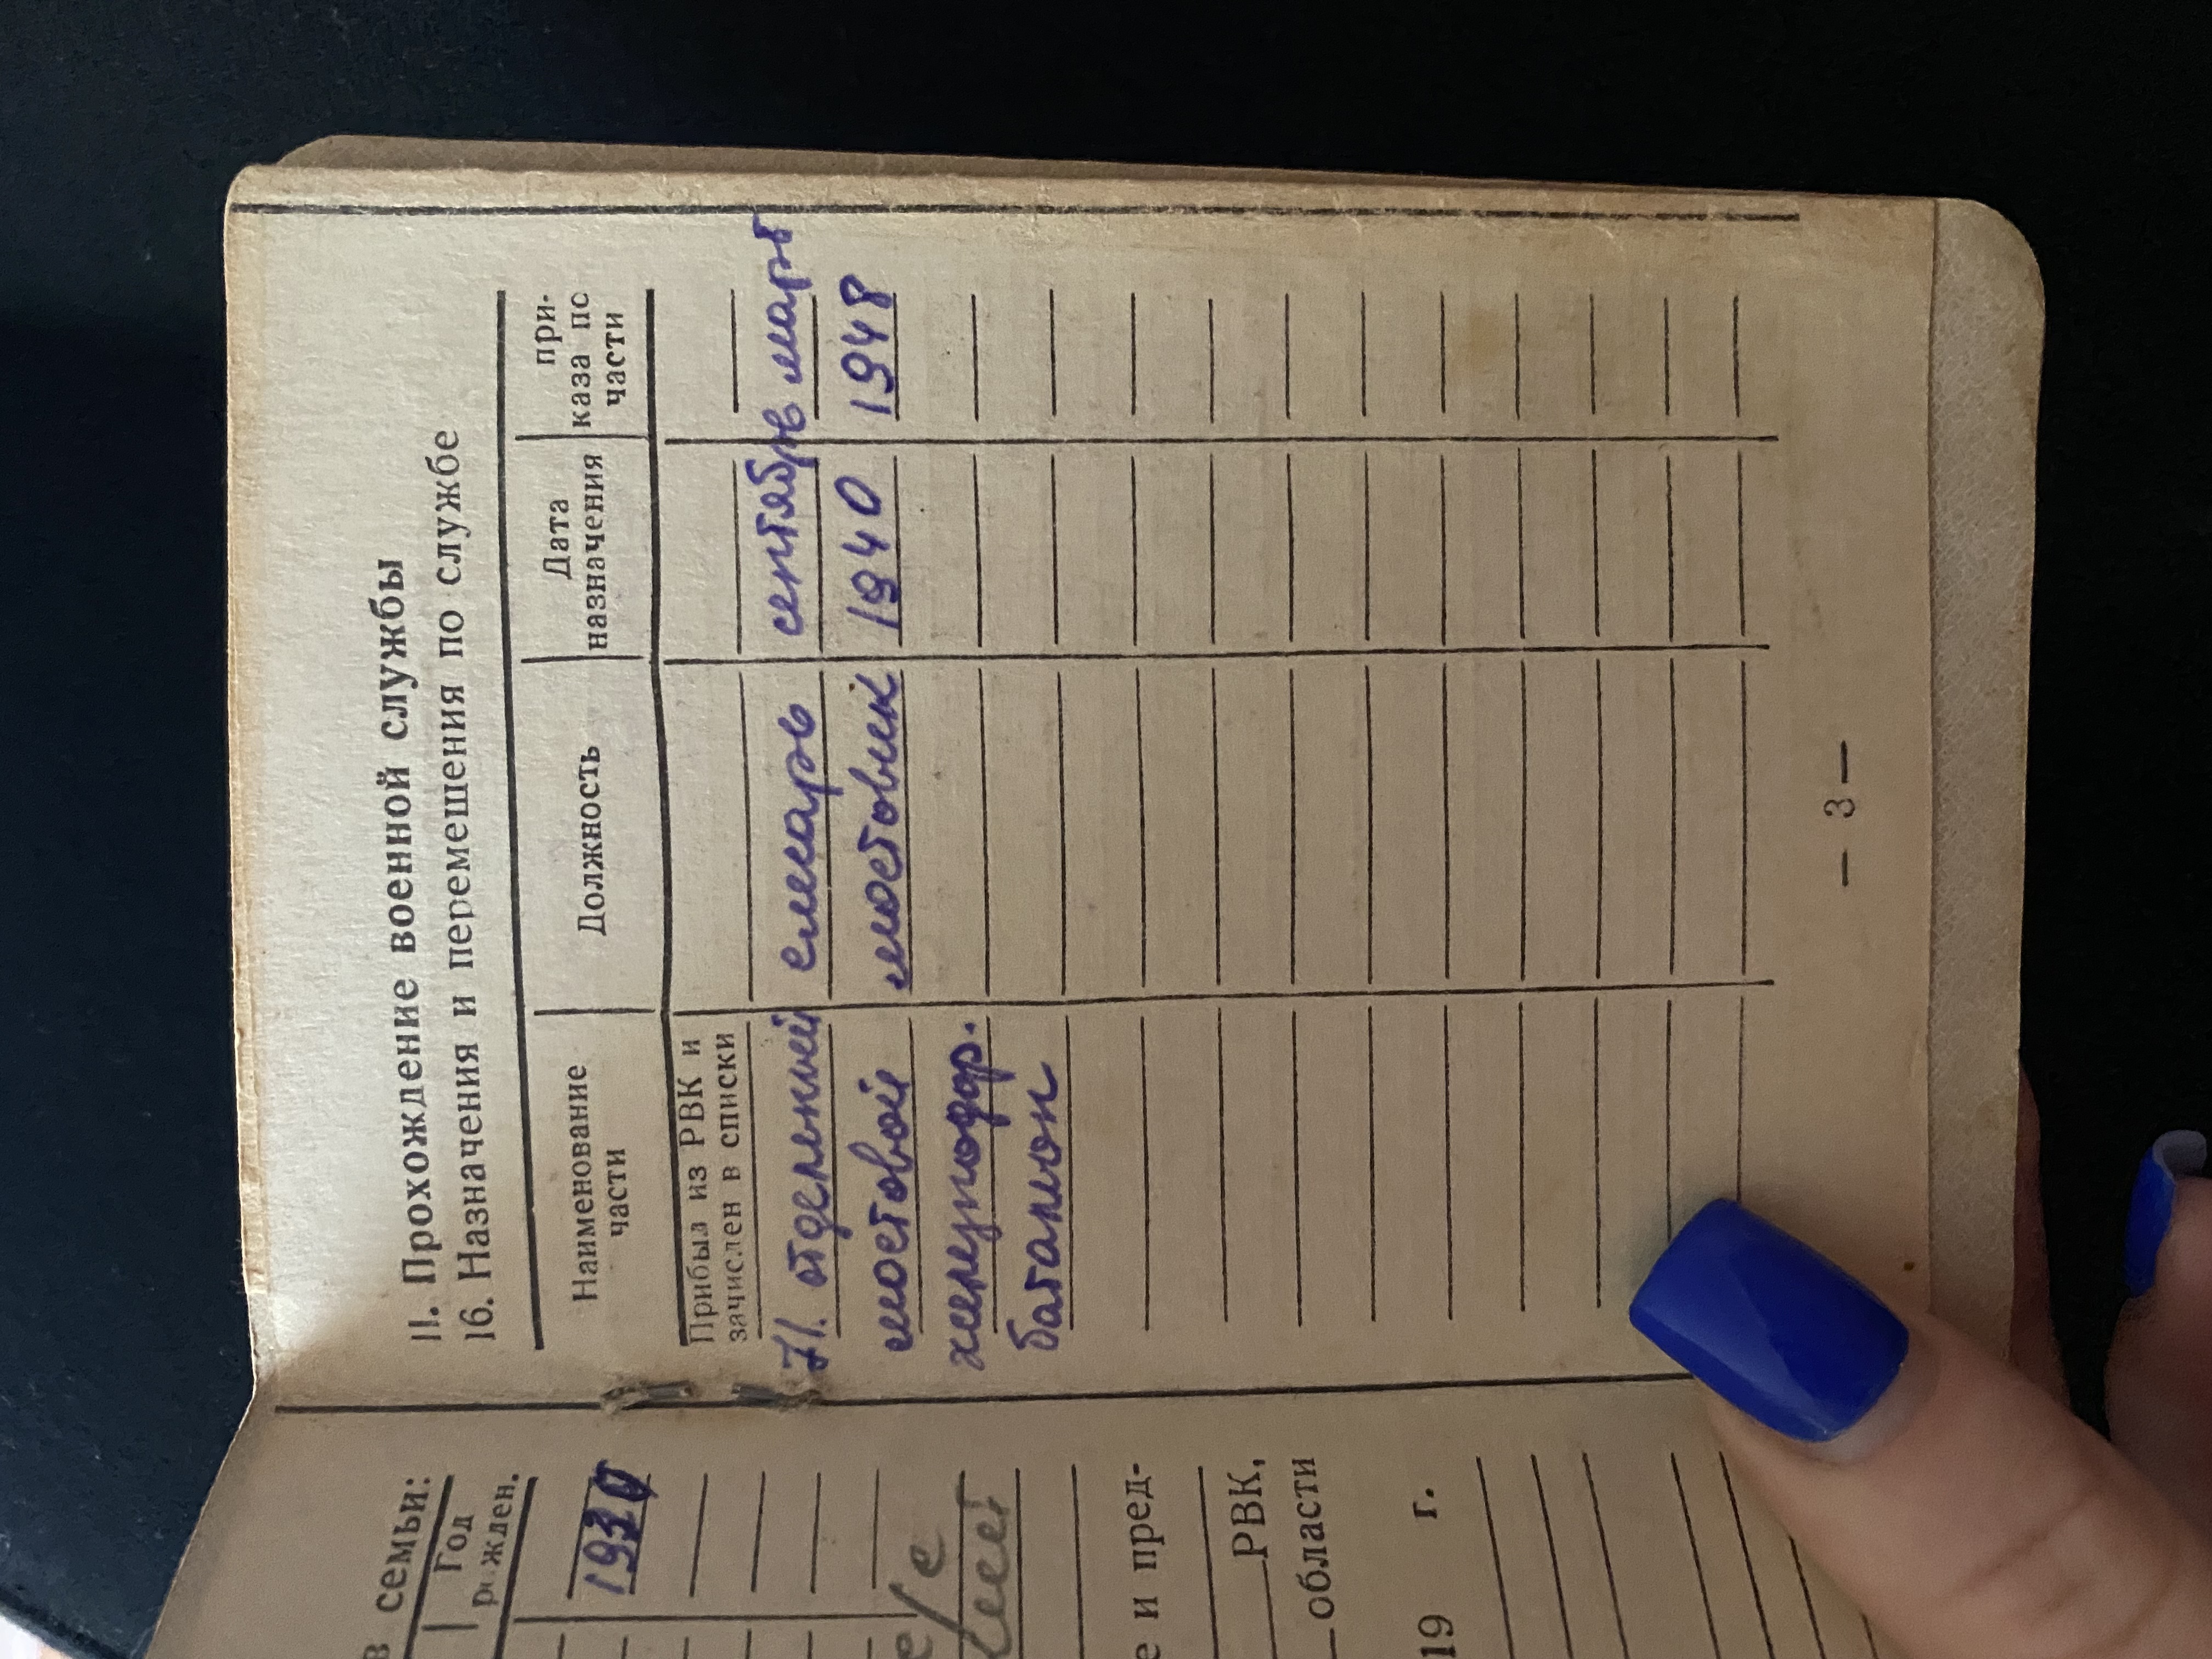 в семьи:
Год
рожден.
1930
е и пред-
РВК,
области
19 г.
II. Прохождение военной службы
16. Назначения и перемещения по службе
Наименование части
Должность
Дата назначения
при-каза по части
Прибыл из РВК и
зачислен в списки
71. отдельный слесарь сентябрь март
мостовой мостовик 1940 1948
железнодор.
батальон
— 3 —